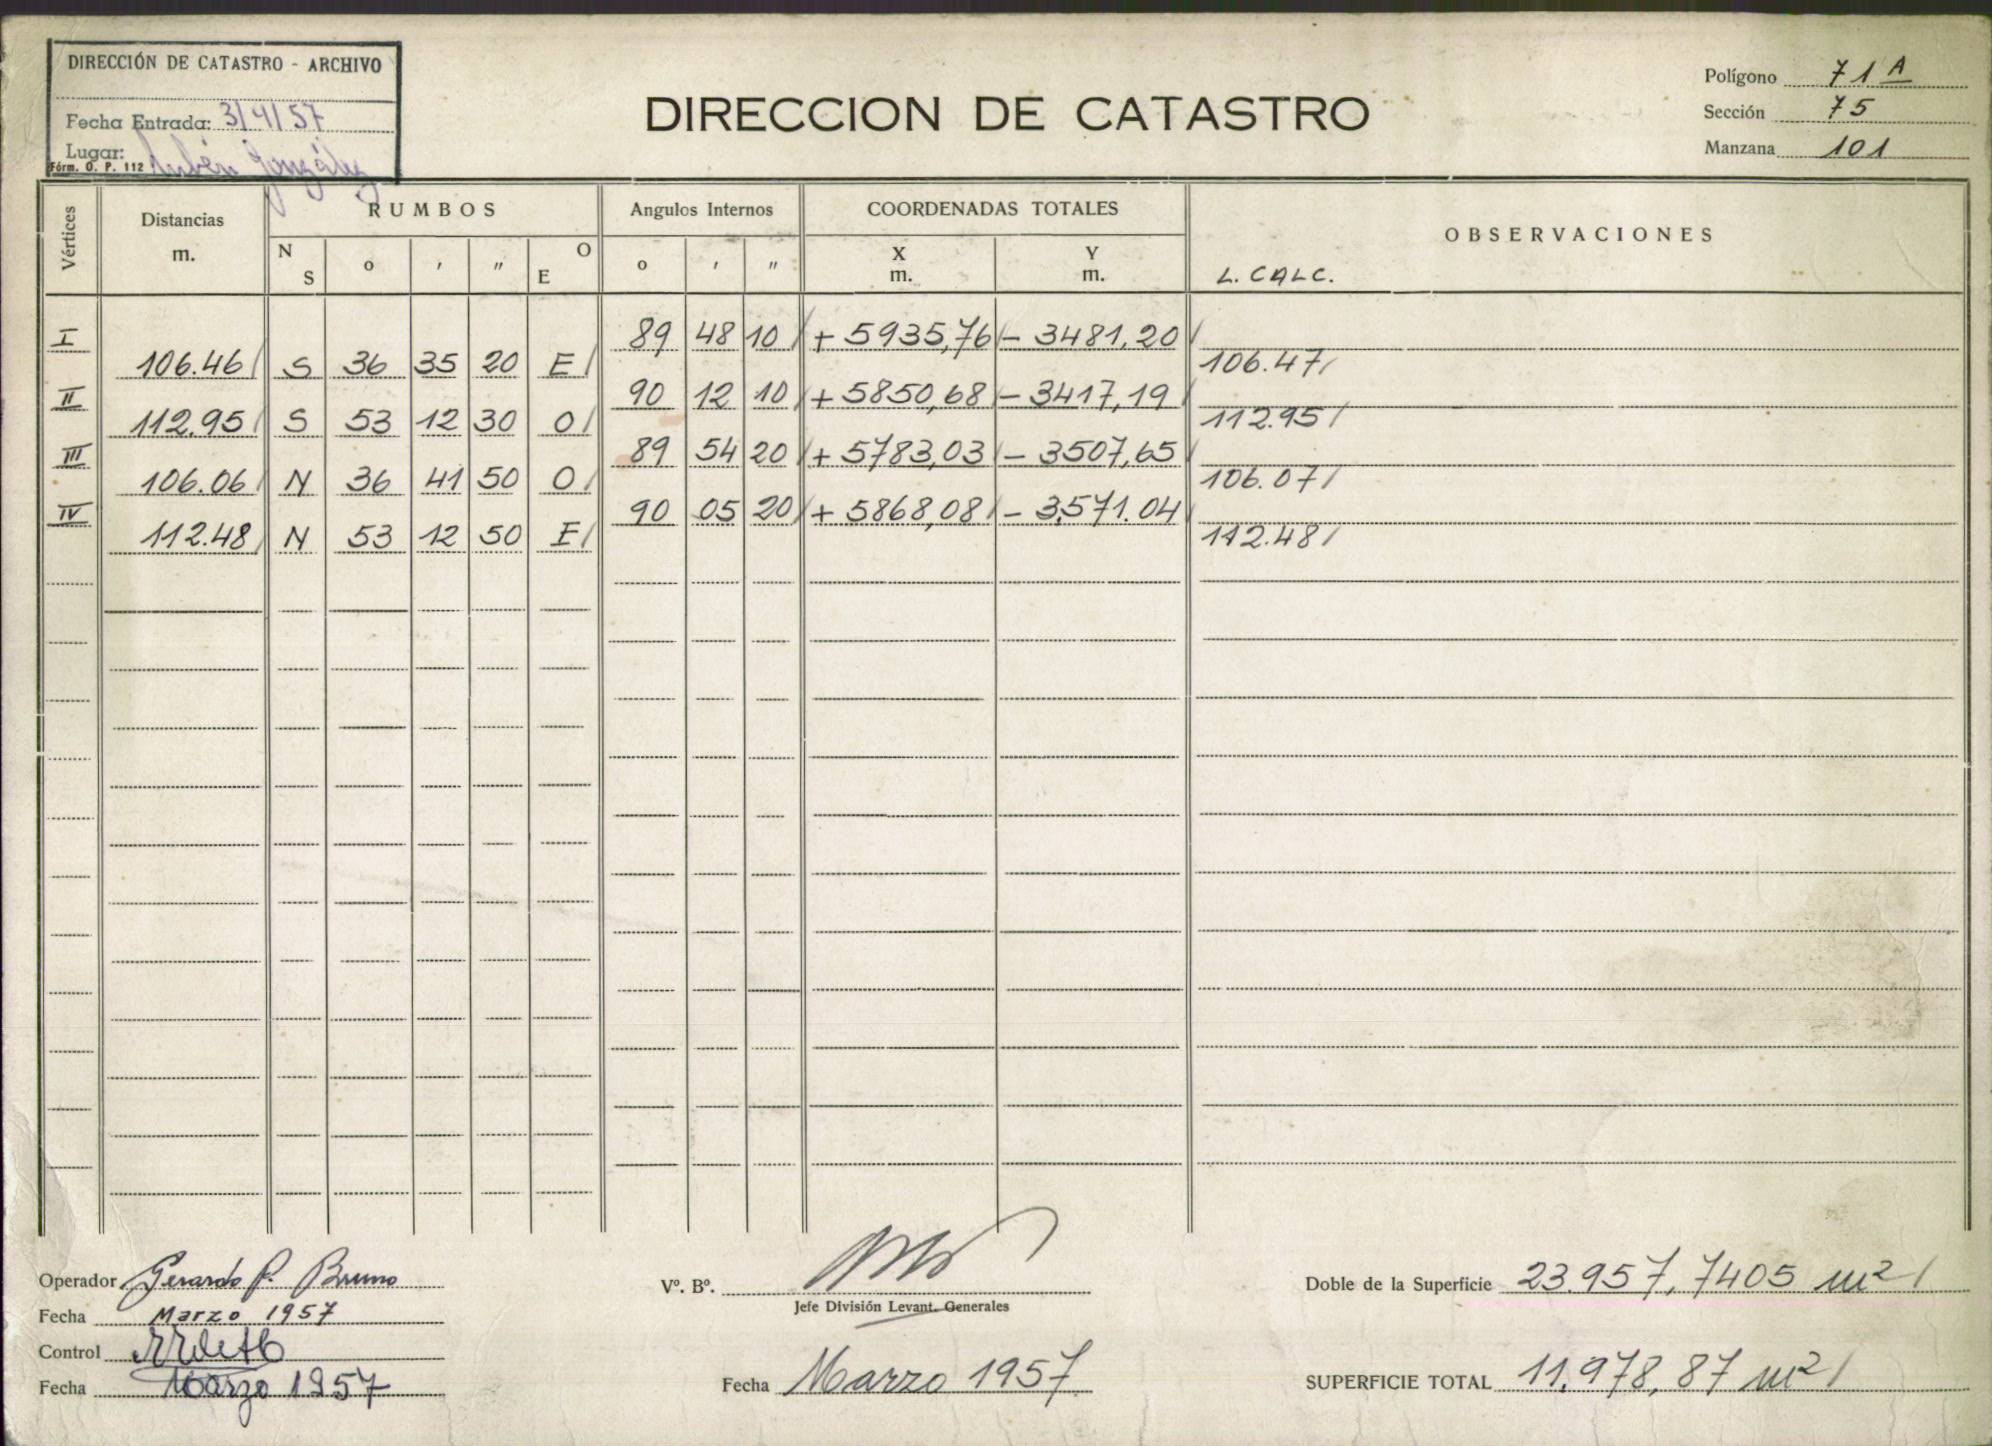 DIRECCIÓN DE CATASTRO - ARCHIVO
Fecha Entrada: 3/4/57
Lugar: Rubén González
Fórm. O. P. 112
DIRECCION DE CATASTRO
Polígono 71 A
Sección 75
Manzana 101
Vértices Distancias m. RUMBOS Angulos Internos COORDENADAS TOTALES OBSERVACIONES
N S o ' " O E o ' " X m. Y m. L. CALC.
I 89 48 10 / + 5935,76 / - 3481,20 /
106.46 / S 36 35 20 E / 106.47 /
II 90 12 10 / + 5850,68 / - 3417,19 /
112.95 / S 53 12 30 O / 112.95 /
III 89 54 20 / + 5783,03 / - 3507,65 /
106.06 / N 36 41 50 O / 106.07 /
IV 90 05 20 / + 5868,08 / - 3.571.04 /
112.48 / N 53 12 50 E / 112.48 /
Operador Gerardo P. Bruno
Fecha Marzo 1957
Control
Fecha Marzo 1957
Vº. Bº.
Jefe División Levant. Generales
Fecha Marzo 1957
Doble de la Superficie 23.957,7405 m² /
SUPERFICIE TOTAL 11.978,87 m² /